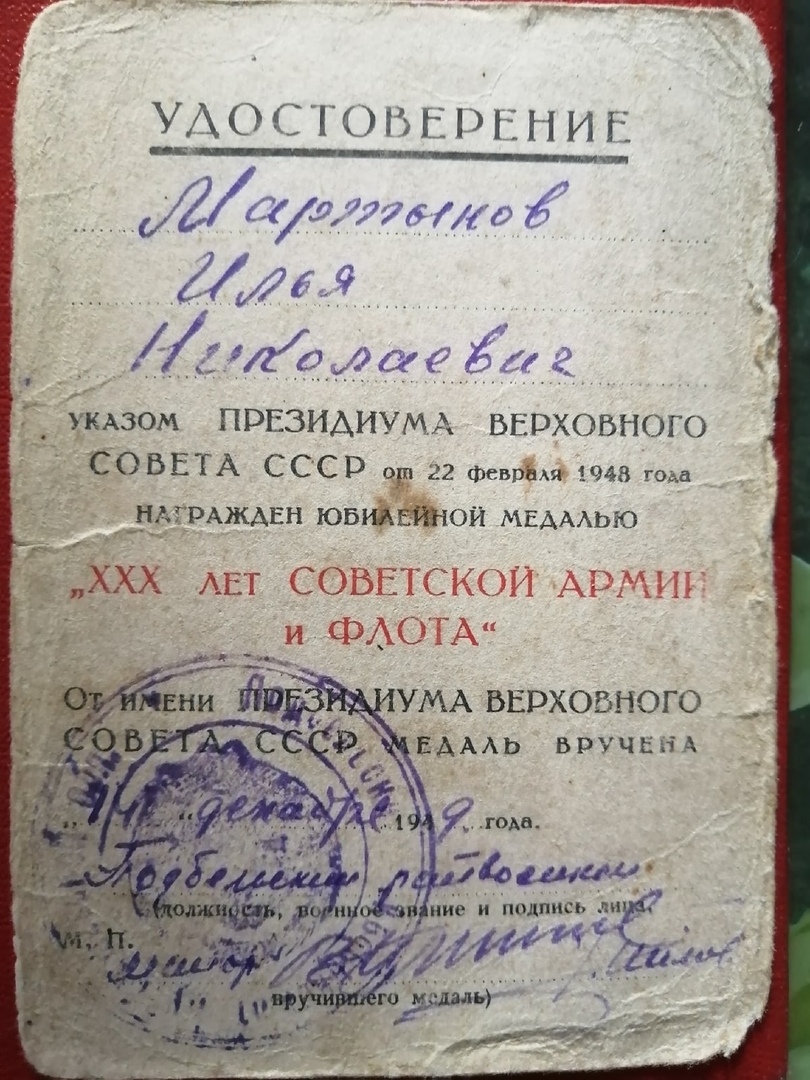 УДОСТОВЕРЕНИЕ
Мартынов
Илья
Николаевич
УКАЗОМ ПРЕЗИДИУМА ВЕРХОВНОГО
СОВЕТА СССР от 22 февраля 1948 года
НАГРАЖДЕН ЮБИЛЕЙНОЙ МЕДАЛЬЮ
„XXX ЛЕТ СОВЕТСКОЙ АРМИИ
и ФЛОТА“
От ИМЕНИ ПРЕЗИДИУМА ВЕРХОВНОГО
СОВЕТА СССР МЕДАЛЬ ВРУЧЕНА
декабря 1949 года.
(должность, военное звание и подпись лица,
М. П.
майор
вручившего медаль)